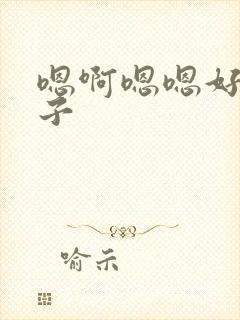 嗯啊嗯嗯好
子
喻示